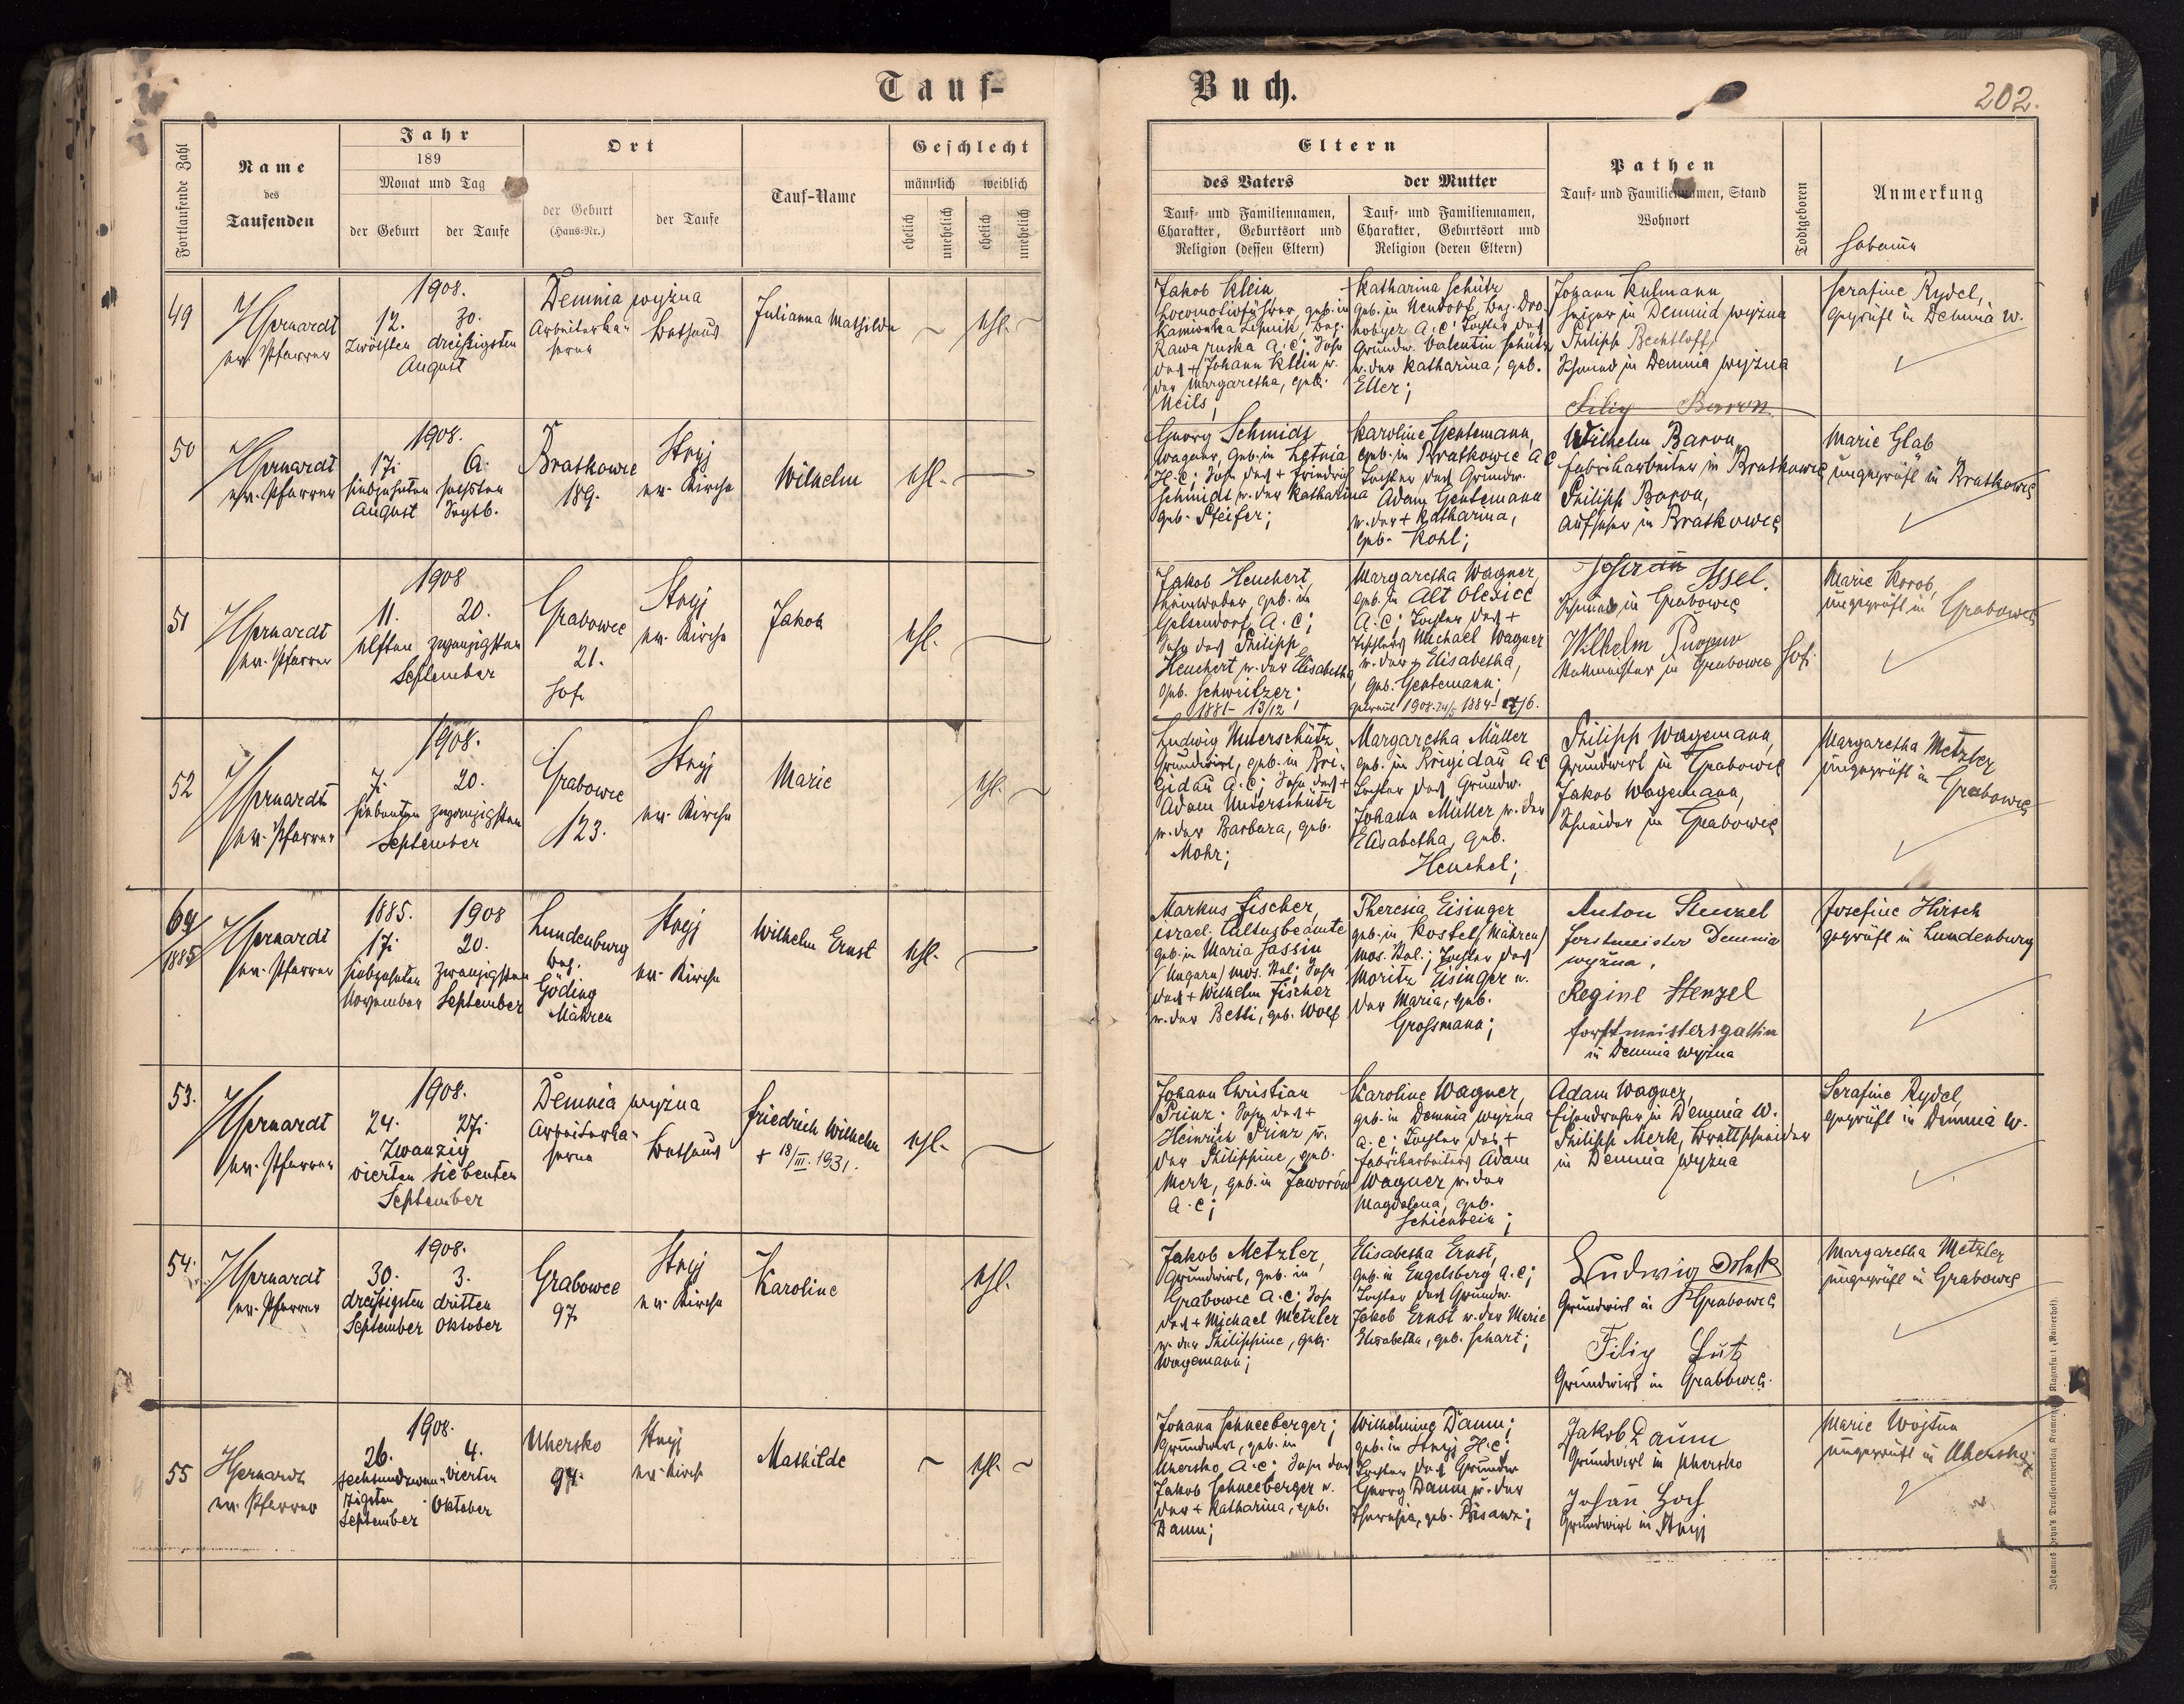 Tauf-
Buch.
202.
Fortlaufende Zahl
Name
des
Taufenden
Jahr
189
Monat und Tag
der Geburt
der Taufe
Ort
der Geburt
(Haus-Nr.)
der Taufe
Tauf-Name
Geschlecht
männlich
weiblich
ehelich
unehelich
ehelich
unehelich
Eltern
des Vaters
der Mutter
Tauf- und Familiennamen,
Charakter, Geburtsort und
Religion (dessen Eltern)
Tauf- und Familiennamen,
Charakter, Geburtsort und
Religion (deren Eltern)
Pathen
Tauf- und Familiennamen, Stand
Wohnort
Todtgeboren
Anmerkung
49
ev. Pfarrer
1908.
12. 30.
zwölften dreißigsten
August
Demnia wyżna
Bethaus
Julianna Mathilde
ehl.
Jakob Klein
Locomotivführer, geb. in
Kamionka
Rawa ruska A. C; Sohn
des + Johann Klein u.
der Margaretha, geb.
Neils;
Katharina Schütz
geb. in Neudorf, Bez. Dro-
hobycz A. C; Tochter des
Grundw. Valentin Schütz
u. der Katharina, geb.
Eller;
Johann Kulmann
Heizer in Demnia wyżna
Philipp Bechtloff,
Schmied in Demnia wyżna
Filip Baron
Serafine Rydel,
geprüft in Demnia w.
50
ev. Pfarrer
1908.
17. 6.
siebzehnten sechsten
August Septb.
Bratkowce
189.
Stryj
ev. Kirche
Wilhelm
ehl.
Georg Schmidt
Wagner, geb. in Letnia
H. C; Sohn des + Friedrich
Schmidt u. der Katharina
geb. Pfeifer;
Karoline Gentemann,
geb. in Bratkowce A C
Tochter des Grundw.
Adam Gentemann
u. der + Katharina,
geb. Kohl;
Wilhelm Baron
Fabriksarbeiter in Bratkowce
Philipp Baron,
Aufseher in Bratkowce
Marie Glab
ungeprüft in Bratkowce
51
ev. Pfarrer
1908
11. 20.
elften zwanzigsten
September
Grabowce
21.
Hof.
Stryj
ev. Kirche
Jakob
ehl.
Jakob Heuchert,
geb. in
Gelsendorf, A. C;
Sohn des Philipp
Heuchert u. der Elisabetha
geb. Schweitzer;
1881- 13/12
Margaretha Wagner,
geb. in Alt Olexice
A. C; Tochter des +
Tischlers Michael Wagner
u. der Elisabetha,
geb. Gentemann;
getraut 1908
Issel.
Schmied in Grabowce
Wilhelm
in Grabowce Hof.
Marie Korob,
ungeprüft in Grabowce
52
ev. Pfarrer
1908.
7. 20.
siebenten zwanzigsten
September
Grabowce
123.
Stryj
ev. Kirche
Marie
ehl.
Ludwig Unterschütz
Grundwirt, geb. in Bri-
gidau A. C; Sohn des +
Adam Unterschütz
u. der Barbara, geb.
Mohr;
Margaretha Müller
geb. in Brigidau A. C
Tochter des Grundw.
Johann Müller u. der
Elisabetha, geb.
Heuchel;
Philipp Wagemann,
Grundwirt in Grabowce
Jakob Wagemann,
Schneider in Grabowce
Margaretha Metzler
ungeprüft in Grabowce
69/
1885
ev. Pfarrer
1885. 1908
17. 20.
siebzehnten zwanzigsten
November September
Lundenburg
Bez.
Göding
Mähren
Stryj
ev. Kirche
Wilhelm Ernst
ehl.
Markus Fischer,
israel. Cultusbeamte
geb. in Maria Jassin
(Ungarn) mos. Rel; Sohn
des + Wilhelm Fischer
u. der Betti, geb. Wolf
Theresia Eisinger
geb. in Kostel (Mähren)
mos. Rel.; Tochter des
Moritz Eisinger u.
der Maria, geb.
Großmann;
Anton Stenzel
Forstmeister Demnia
wyżna,
Regine Stenzel
Forstmeistersgattin
in Demnia wyżna
Josefine Hirsch
geprüft in Lundenburg
53.
ev. Pfarrer
1908.
24. 27.
Zwanzig
vierten siebenten
September
Demnia wyżna
Bethaus
Friedrich Wilhelm
+ 18/III. 1931.
ehl.
Johann Christian
Prinz; Sohn des +
Heinrich Prinz u.
der Philippine, geb.
Merk, geb. in Jaworów
A. C;
Karoline Wagner,
geb. in Demnia wyżna
A. C; Tochter des +
Fabriksarbeiters Adam
Wagner u. der
Magdalena, geb.
Schienbein;
Adam Wagner,
Eisendreher in Demnia w.
Philipp Merk, Brettschneider
in Demnia wyżna
Serafine Rydel,
geprüft in Demnia w.
54.
ev. Pfarrer
1908.
30. 3.
dreißigsten dritten
September Oktober
Grabowce
97.
Stryj
ev. Kirche
Karoline
ehl.
Jakob Metzler,
Grundwirt, geb. in
Grabowce A. C; Sohn
des + Michael Metzler
u. der Philippine, geb.
Wagemann;
Elisabetha Ernst,
geb. in Engelsberg A. C;
Tochter des Grundw.
Jakob Ernst u. der Marie
Elisabetha, geb. Schart;
Ludwig
Grundwirt in Grabowce
Filip Lutz
Grundwirt in Grabowce.
Margaretha Metzler
ungeprüft in Grabowce
55
ev. Pfarrer
1908.
26. 4.
sechsundzwan- vierten
zigsten
September Oktober
Uhersko
94.
Stryj
ev. Kirche
Mathilde
ehl.
Johann Schneeberger;
Grundwirt, geb. in
Uhersko A. C; Sohn des
Jakob Schneeberger u.
der + Katharina, geb.
Daum;
Wilhelmine Daum;
geb. in Stryj H. C;
Tochter des Grundw
Georg Daum u. der
Theresia, geb. Bisanz;
Jakob Daum
Grundwirt in Uhersko
Johann Hoch
Grundwirt in Stryj
Marie Wojtna
ungeprüft in Uhersko